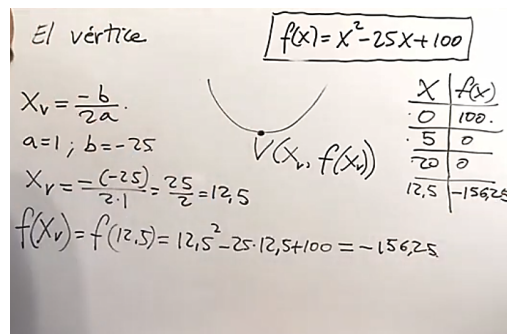 El vértice
f(x)=x²-25x+100
Xᵥ = -b/2a.
a=1; b=-25
Xᵥ = -(-25)/2·1 = 25/2 = 12,5
f(Xᵥ)=f(12,5)=12,5²-25·12,5+100=-156,25
V(Xᵥ, f(Xᵥ))
X f(x)
0 100.
5 0
20 0
12,5 -156,25